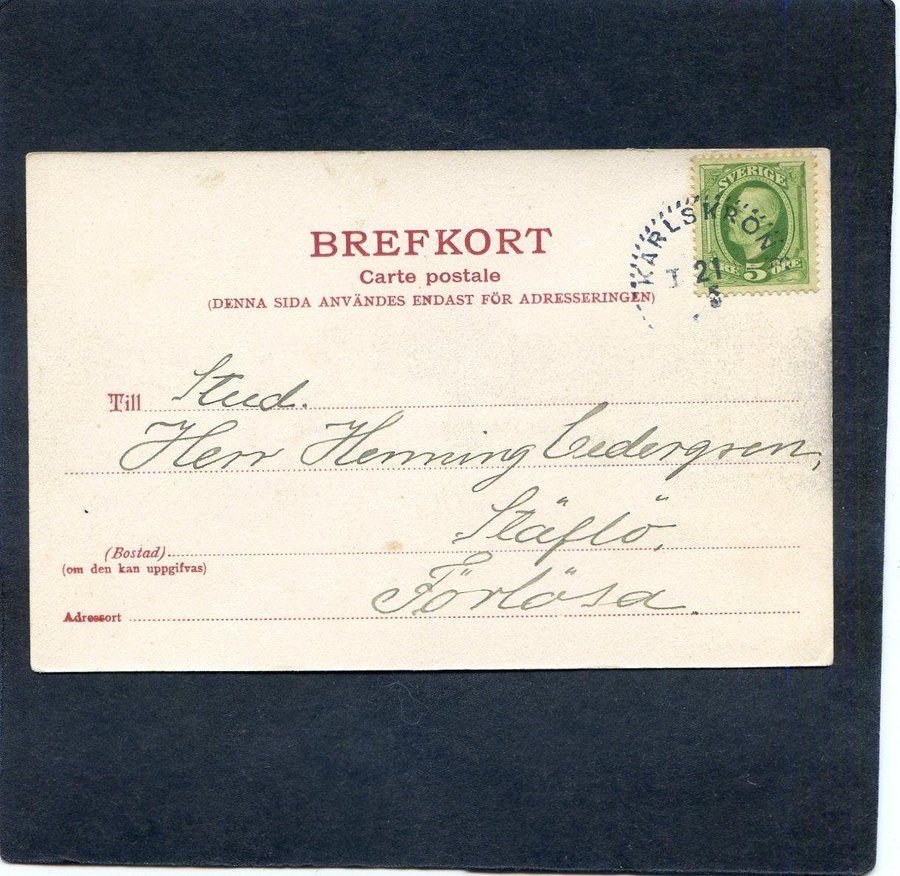 BREFKORT
Carte postale
(DENNA SIDA ANVÄNDES ENDAST FÖR ADRESSERINGEN)
SVERIGE
5 ÖRE
KARLSKRON
21
5
Till Stud.
Herr Henning Cedergren,
Stäflö,
(Bostad)
(om den kan uppgifvas)
Förlösa.
Adressort